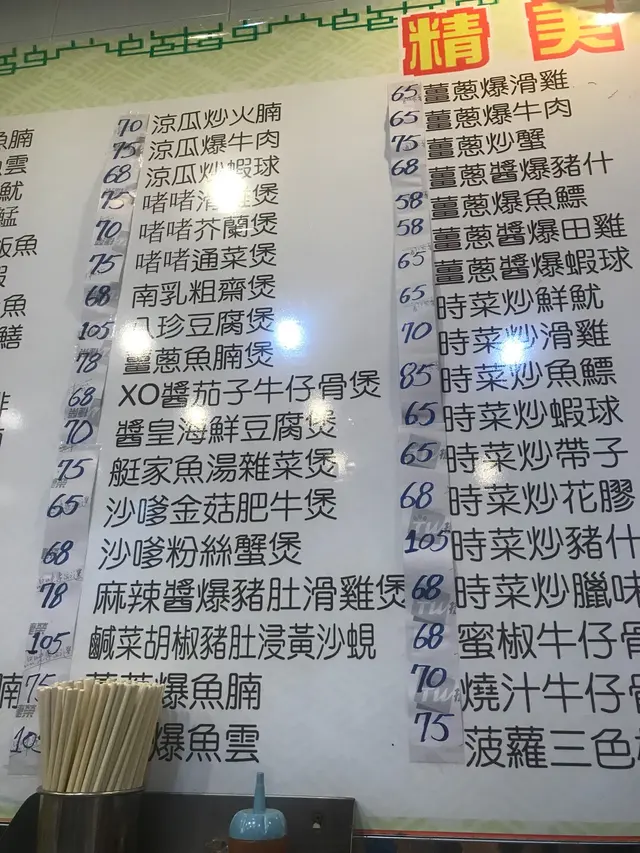 精美
魚腩
雲
魷
魚
鱔
腩
70 涼瓜炒火腩
75 涼瓜爆牛肉
68 涼瓜炒蝦球
75 啫啫滑雞煲
70 啫啫芥蘭煲
75 啫啫通菜煲
68 南乳粗齋煲
105 八珍豆腐煲
78 薑蔥魚腩煲
68 XO醬茄子牛仔骨煲
70 醬皇海鮮豆腐煲
75 艇家魚湯雜菜煲
65 沙嗲金菇肥牛煲
68 沙嗲粉絲蟹煲
78 麻辣醬爆豬肚滑雞煲
105 鹹菜胡椒豬肚浸黃沙蜆
75 薑蔥爆魚腩
105 爆魚雲
65 薑蔥爆滑雞
65 薑蔥爆牛肉
75 薑蔥炒蟹
68 薑蔥醬爆豬什
58 薑蔥爆魚鰾
58 薑蔥醬爆田雞
65 薑蔥醬爆蝦球
65 時菜炒鮮魷
70 時菜炒滑雞
85 時菜炒魚鰾
65 時菜炒蝦球
65 時菜炒帶子
68 時菜炒花膠
105 時菜炒豬什
68 時菜炒臘味
68 蜜椒牛仔骨
70 燒汁牛仔骨
75 菠蘿三色